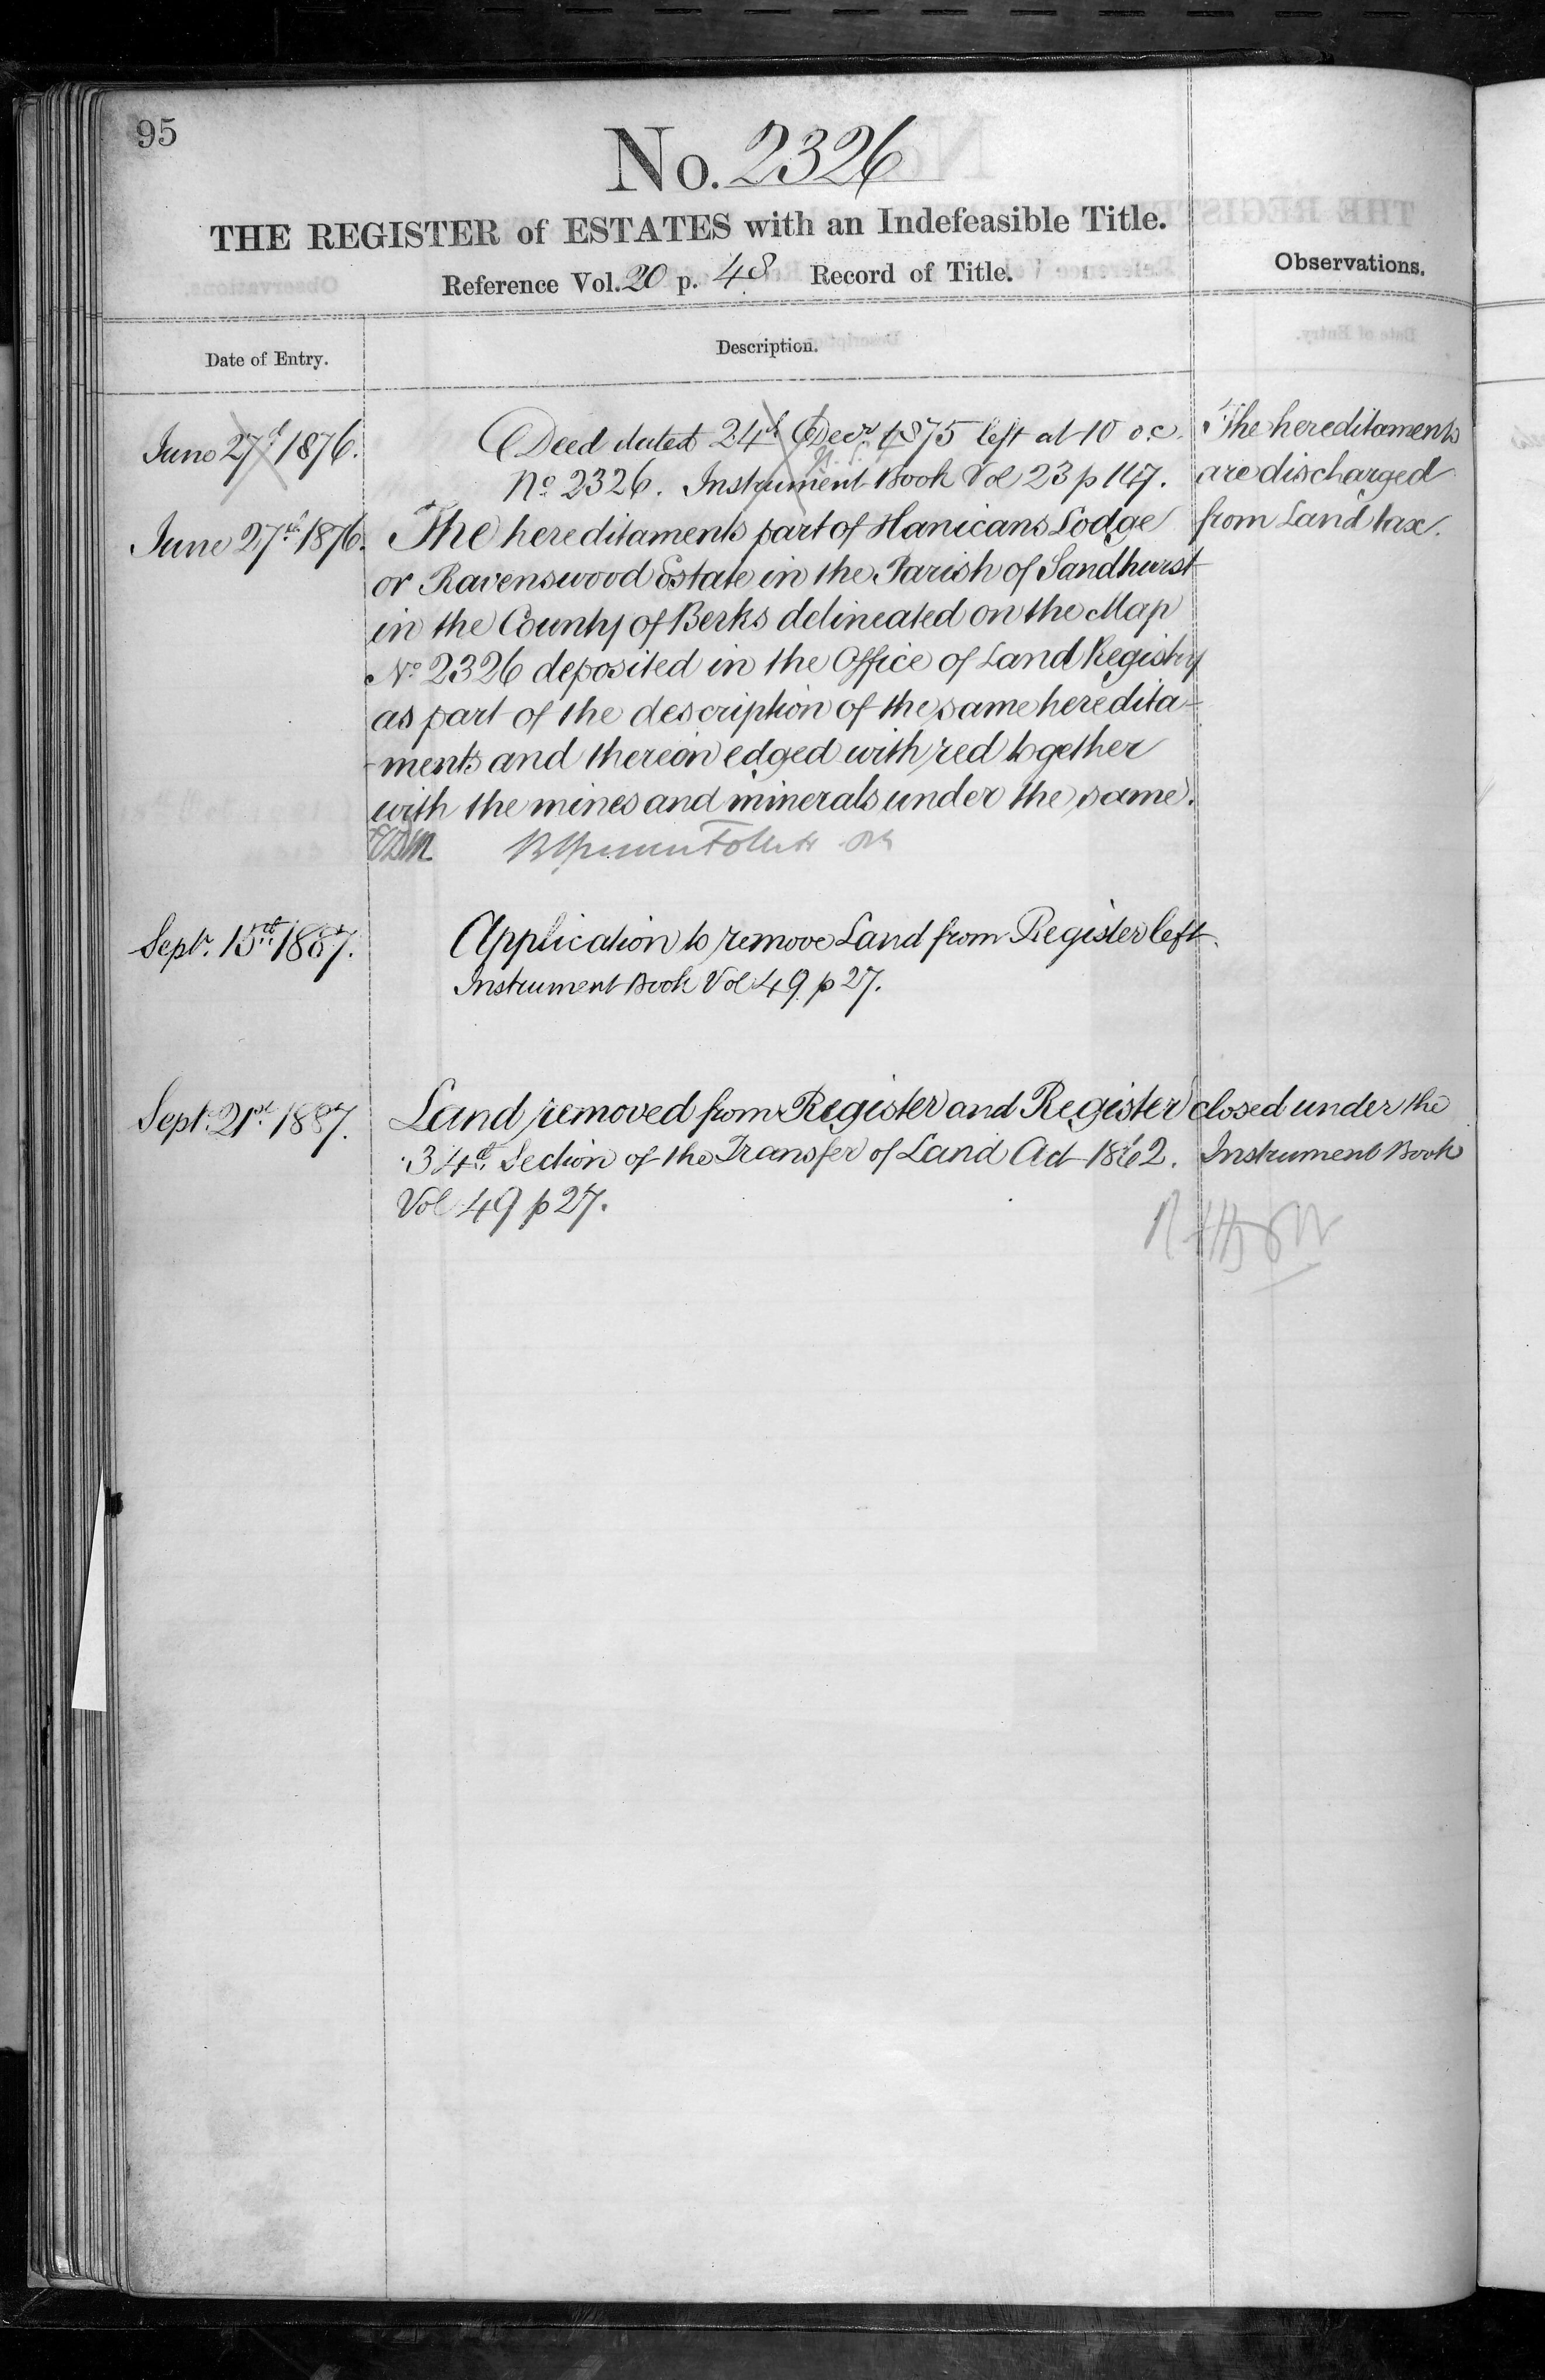 95
No. 2326
THE REGISTER of ESTATES with an Indefeasible Title.
Reference Vol. 20 p. 48 Record of Title.
Observations.
Date of Entry.
Description.
June 27th 1876.
Deed dated 24th Decr 1875 left at 10 o.c.
No 2326. Instrument Book Vol 23 p 147.
The hereditaments
are discharged
from Land tax.
June 27th 1876.
The hereditaments part of Hanicans Lodge
or Ravenswood Estate in the Parish of Sandhurst
in the County of Berks delineated on the Map
No 2326 deposited in the Office of Land Registry
as part of the description of the same heredita-
-ments and thereon edged with red together
with the mines and minerals under the same.
Septr. 15th 1887.
Application to remove Land from Register left.
Instrument Book Vol 49 p 27.
Septr. 21st 1887.
Land removed from Register and Register closed under the
34th Section of the Transfer of Land Act 1862. Instrument Book
Vol 49 p 27.